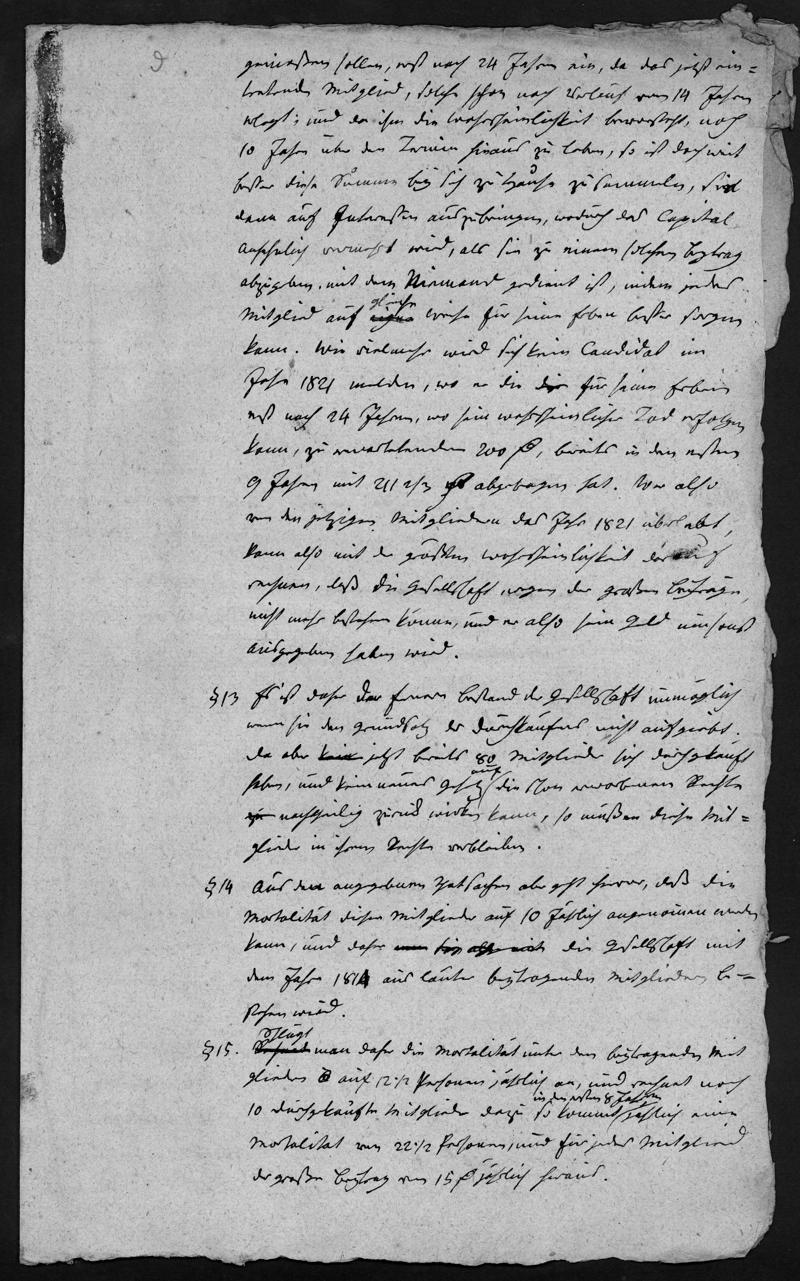 genießen sollen, erst nach 24 Jahren ein, da das jetzt ein=
tretende Mitglied, solche schon nach Verlauf von 14 Jahren
erlegt; und da ihm die Wahrscheinlichkeit bevorsteht, noch
10 Jahre über den Termin hinaus zu leben, so ist doch weit
besser diese Summe bey sich zu Hause zu sammeln, sie
dann auf Interessen auszubringen, wodurch das Capital
ansehnlich vermehrt wird, als sie zu einem solchen Beytrag
abzugeben, mit dem Niemand gedient ist, indem jedes
Mitglied auf gleiche Weise für seine Erben besser sorgen
kann. Wie vielmehr wird sich kein Candidat im
Jahr 1821 melden, wo er die für seine Erben
erst nach 24 Jahren, wo sein wahrscheinlicher Tod erfolgen
kann, zu erwartenden 200 , bereits in den ersten
9 Jahren mit 211 2/3 abgetragen hat. Wer also
von den jetzigen Mitgliedern das Jahr 1821 überlebt,
kann also mit der größten Wahrscheinlichkeit darauf
rechnen, daß die Gesellschaft, wegen der großen Beyträge,
nicht mehr bestehen könne, und er also sein Geld umsonst
ausgegeben haben wird.
§ 13 Es ist daher der fernere Bestand der Gesellschaft unmöglich
wenn sie den Grundsatz des Durchkaufens nicht aufgiebt.
da aber jetzt bereits 80 Mitglieder sich durchgekauft
haben, und kein neues Gesetz auf die schon erworbenen Rechte
nachtheilig zurück wirken kann, so müßen diese Mit=
glieder in ihrem Rechte verbleiben.
§ 14 Aus den angegebenen Thatsachen aber geht hervor, daß die
Mortalität dieser Mitglieder auf 10 Jährlich angenommen werden
kann, und daher die Gesellschaft mit
dem Jahre 1814 aus lauter beytragenden Mitgliedern be=
stehen wird.
§ 15. Schlägt man daher die Mortalität unter den beytragenden Mit
gliedern auf 12 1/2 Personen jährlich an, und rechnet noch
10 durchgekaufte Mitglieder dazu so kommt in den ersten 8 Jahren jährlich eine
Mortalität von 22 1/2 Personen, und für jedes Mitglied
der große Beytrag von 15 jährlich heraus.